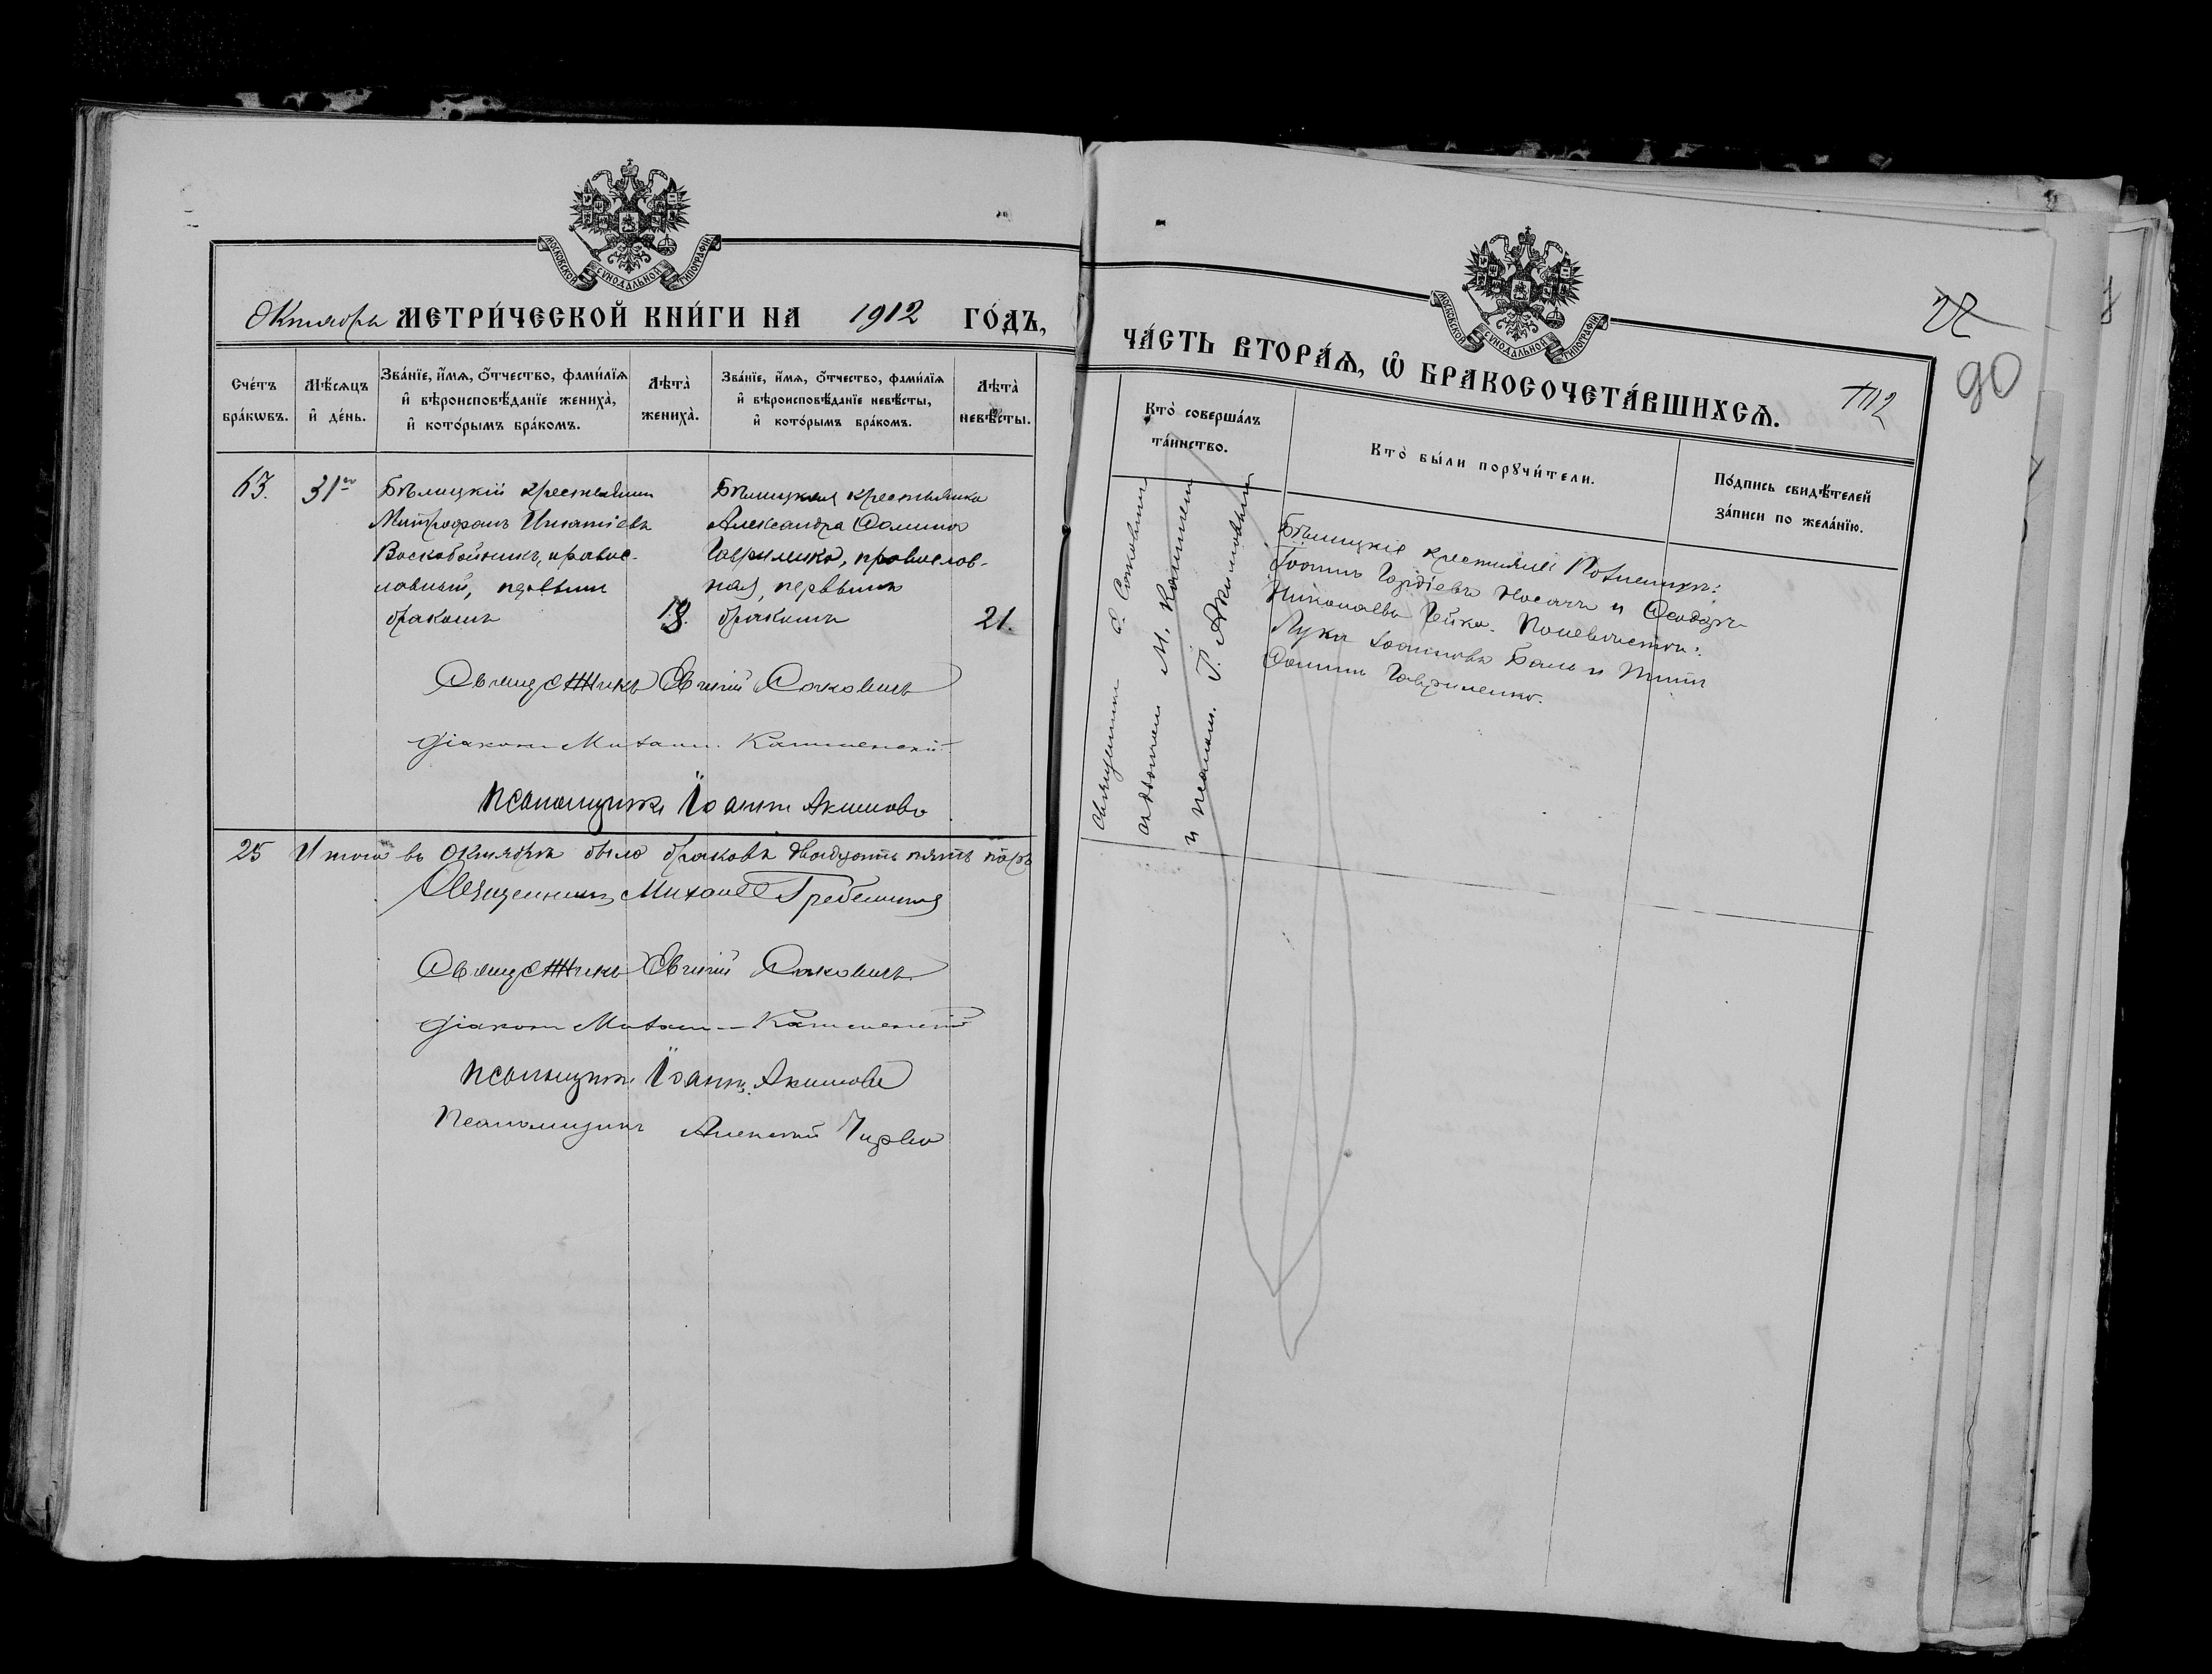 МОСКОВСКОЙ СѴНОДАЛЬНОЙ ТИПОГРАФІИ
Октябрь МЕТРИ́ЧЕСКОЙ КНИ́ГИ НА 1912 ГО́ДЪ,
Сче́тъ бра́кѡвъ.
Мѣ́сяцъ и҆ де́нь.
Зва́нїе, и҆́мѧ, ѻ҆́тчество, фами́лїѧ и҆ вѣроисповѣ́данїе жениха̀, и҆ кото́рымъ бра́комъ.
Лѣта̀ жениха̀.
Зва́нїе, и҆́мѧ, ѻ҆́тчество, фами́лїѧ и҆ вѣроисповѣ́данїе невѣ́сты, и҆ кото́рымъ бра́комъ.
Лѣта̀ невѣ́сты.
63.
31го
Бѣлицкій крестьянинъ
Митрофанъ Игнатіевъ
Воскобойникъ, правос-
лавный, первымъ
бракомъ
18.
Бѣлицкая крестьянка
Александра Фомина
Гавриленко, православ-
ная, первымъ
бракомъ
21.
Священникъ Евгеній Сачковичъ
Діаконъ Михаилъ Каменскій
Псаломщикъ Іоаннъ Акимовъ
25 Итого въ Октябрѣ было браковъ двадцать пять паръ
Священникъ Михаилъ Гребенников
Священникъ Евгеній Сачковичъ
Діаконъ Михаилъ Каменскій
Псаломщикъ Іоаннъ Акимовъ
Псаломщикъ Алексій Чирво
МОСКОВСКОЙ СѴНОДАЛЬНОЙ ТИПОГРАФІИ
ЧА́СТЬ ВТОРА́Ѧ, Ѽ БРАКОСОЧЕТА́ВШИХСѦ.
112
90
Кто̀ соверша́лъ та́инство.
Кто̀ бы́ли порꙋчи́тели.
По́дпись свидѣ́телей за́писи по жела́нїю.
Священникъ Е. Сачковичъ
съ діакономъ М. Каменскимъ
и псалом. І. Акимовымъ
Бѣлицкіе крестьяне По женихѣ:
Іоаннъ Гордіевъ Носачъ и Ѳеодоръ
Николаевъ Гейко. По невѣстѣ:
Лука Іоанновъ Баль и Титъ
Фоминъ Гавриленко.